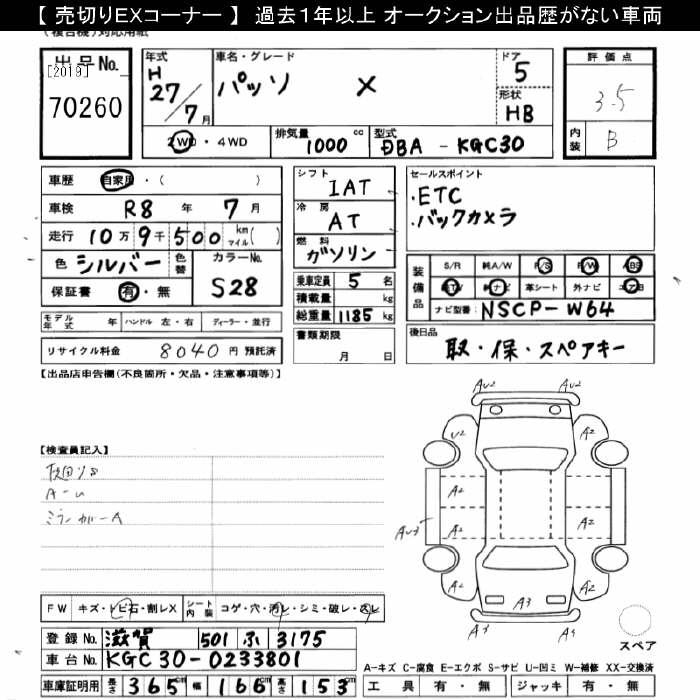 【 売切りEXコーナー 】 過去１年以上 オークション出品歴がない車両
(複合機)対応用紙
出品No.
[2019]
70260
年式 H 27/7月
車名・グレード パッソ X
ドア 5
形状 HB
評価点
3.5
内装 B
2WD・4WD
排気量 1000 cc
型式 DBA - KGC30
車歴 自家用・( )
車検 R8 年 7 月
走行 10万9千500 kmマイル( )
色 シルバー 色替 カラーNo. S28
保証書 有・無
モデル年式 年 ハンドル 左・右 ディーラー・並行
リサイクル料金 8040 円 預託済
シフト IAT
冷房 AT
燃料 ガソリン
乗車定員 5 名
積載量 kg
総重量 1185 kg
書類期限
月 日
セールスポイント
・ETC
・バックカメラ
装備品
S/R 純A/W P/S P/W ABS
純TV 純ナビ 革シート 外ナビ エアB
ナビ型番 NSCP-W64
後日品
取・保・スペアキー
【出品店申告欄(不良箇所・欠品・注意事項等)】
【検査員記入】
A-U
ミラーカバーA
AU2 A2
U2 A2
A2 A2
AU3 A2 A2
A2 A2
A3
A3 A3
スペア
FW キズ・トビ石・割レX シート内装 コゲ・穴・汚レ・シミ・破レ・スレ
登録No. 滋賀 501 ふ 3175
車台No. KGC30-0233801
車庫証明用 長さ 365cm 幅 166cm 高さ 153cm
A-キズ C-腐食 E-エクボ S-サビ U-凹ミ W-補修 XX-交換済
工具 有・無 ジャッキ 有・無